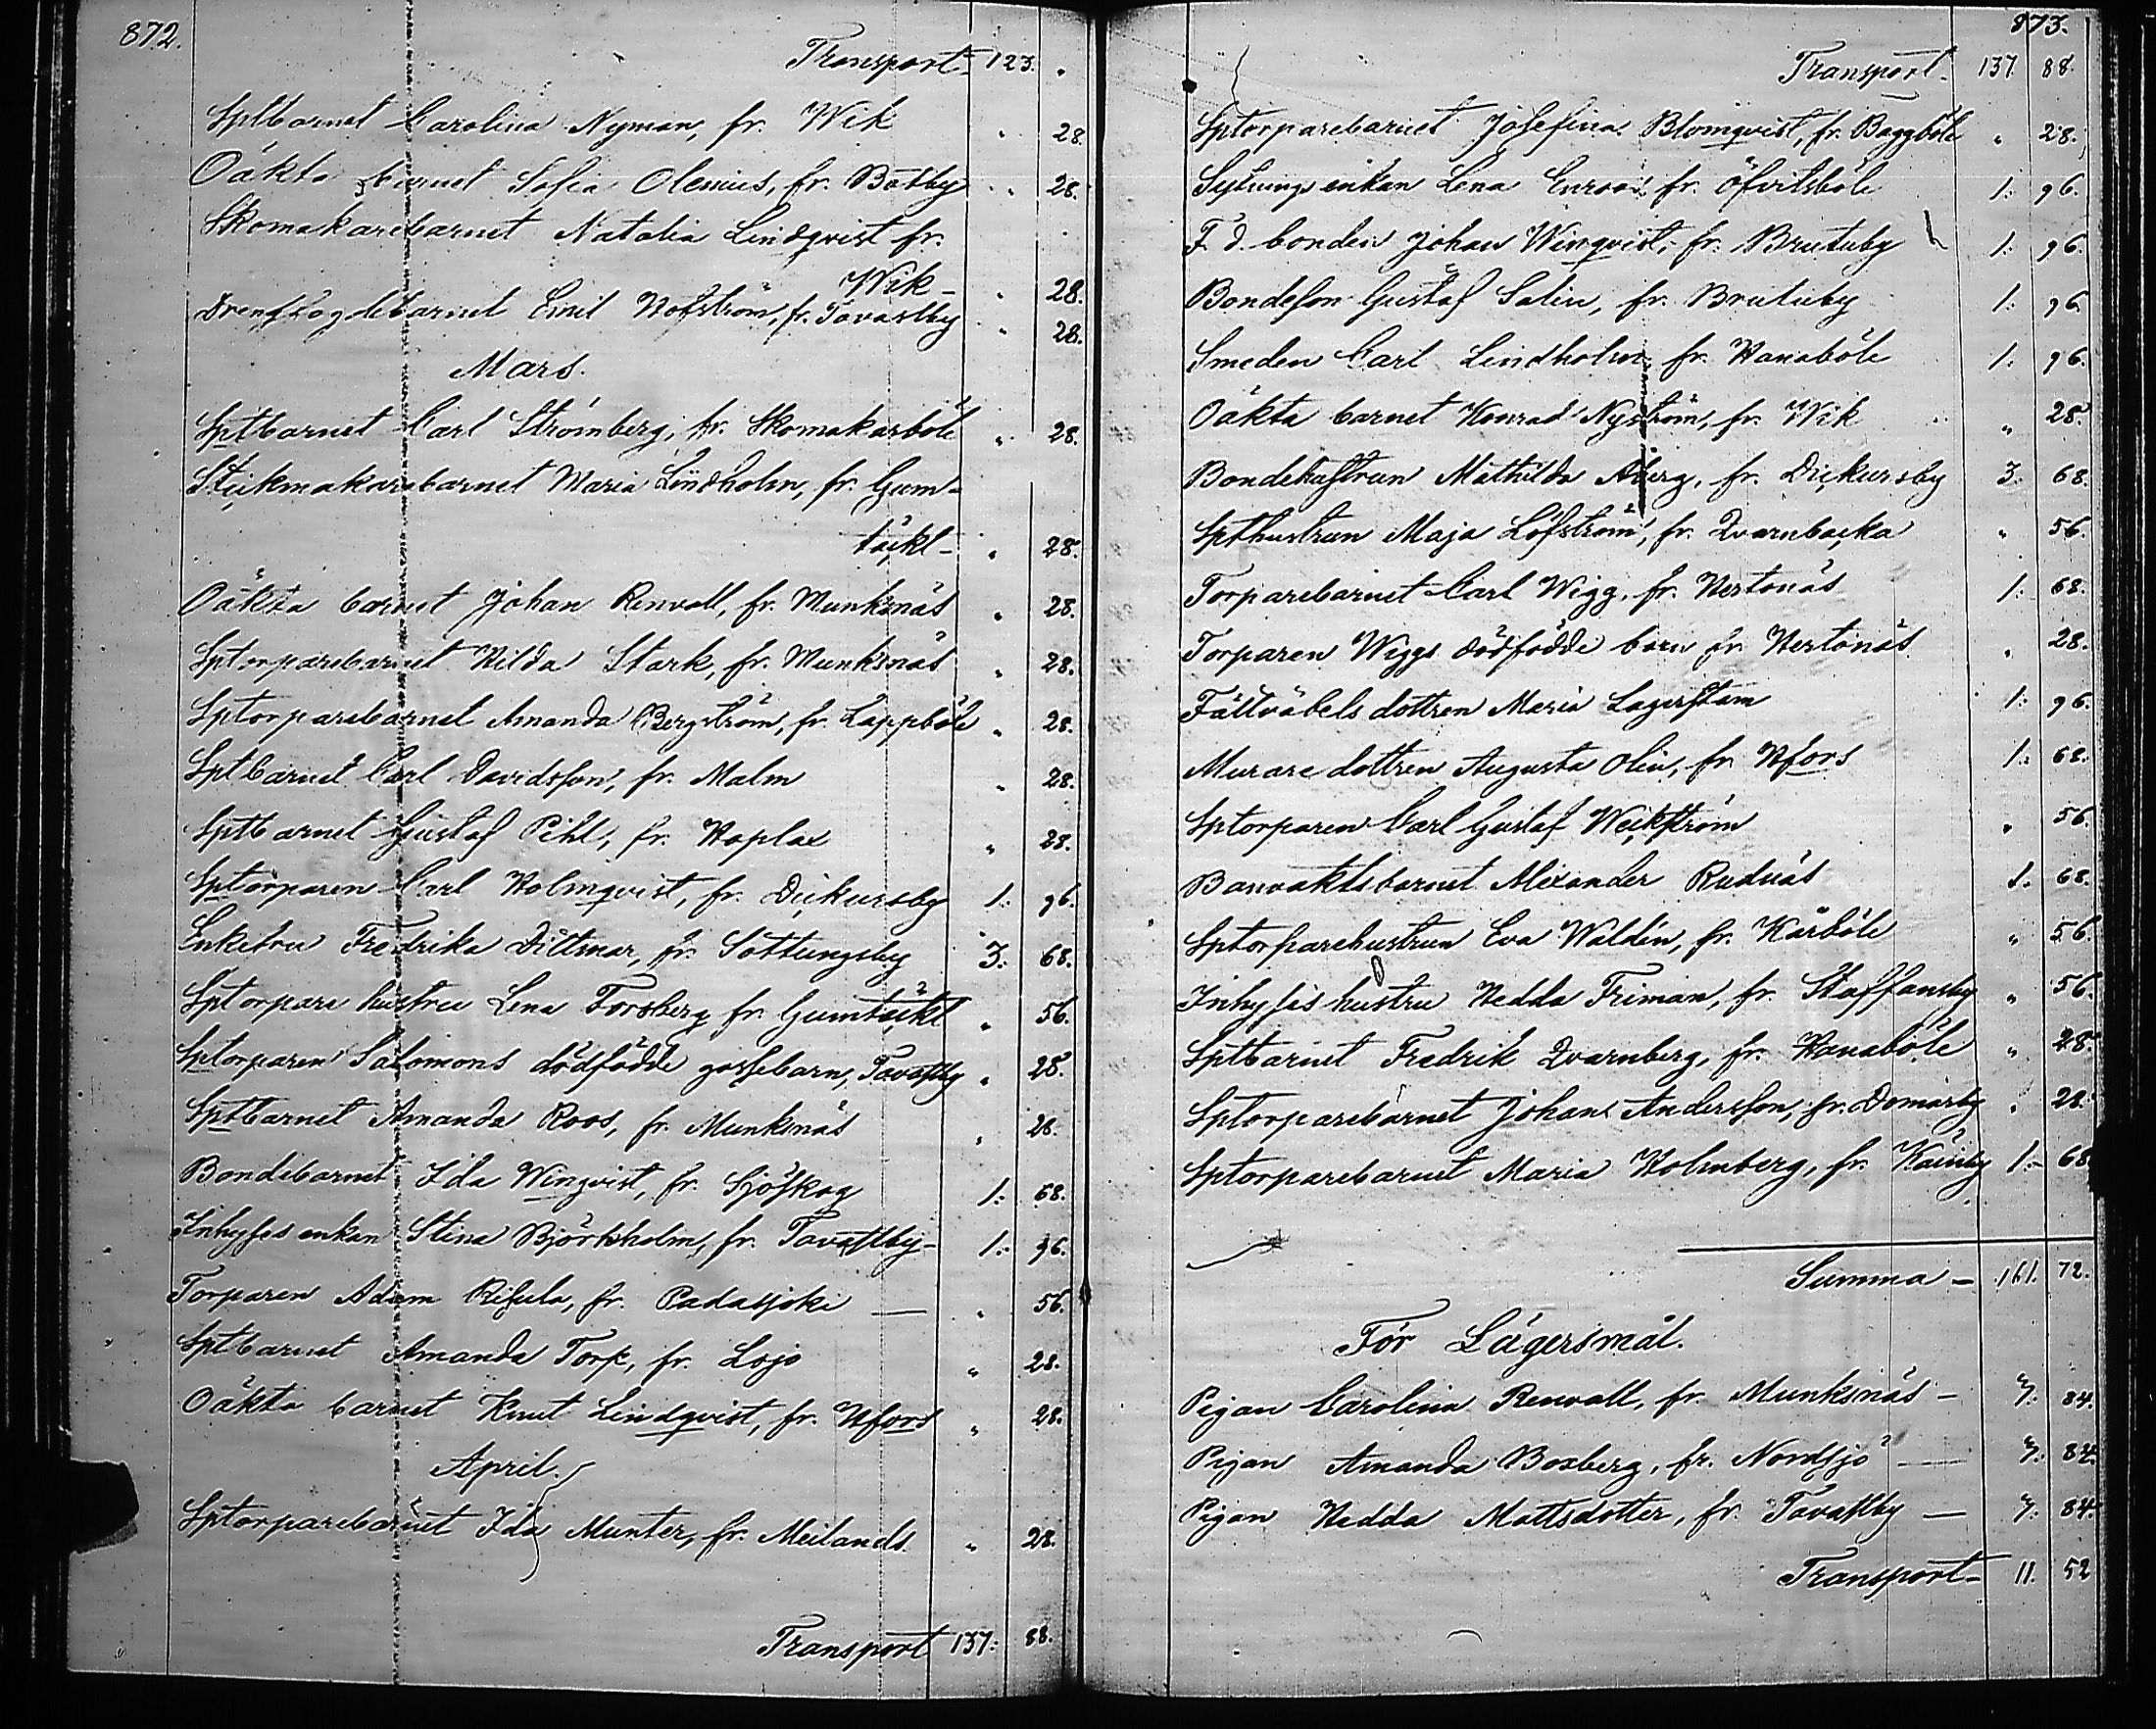 872.
Transport- 123. "
Sptbarnet Carolina Nyman, fr. Wik " 28.
Oäkta barnet Sofia Olenius, fr. Botby " 28.
Skomakarebarnet Natalia Lindqvist fr.
Wik- " 28.
Drengfogdebarnet Emil Hofström, fr. Tavastby " 28.
Mars.
Sptbarnet Carl Strömberg, fr. Skomakarböle " 28.
Stickmakarebarnet Maria Lindholm, fr. Gum-
täckt- " 28.
Oäkta barnet Johan Renvall, fr. Munksnäs " 28.
Sptorparebarnet Hilda Stark, fr. Munksnäs " 28.
Sptorparebarnet Amanda Bergström, fr. Lappböle " 28.
Sptbarnet Carl Davidsson, fr. Malm " 28.
Sptbarnet Gustaf Pihl, fr. Haplax " 28.
Sptorparen Carl Holmqvist, fr. Dickursby 1: 96.
Enkefru Fredrika Dittmar, fr. Sottungsby 3: 68.
Sptorpare hustru Lena Forsberg fr. Gumtäckt " 56.
Sptorparen Salomons dödfödde gossebarn, Tavastby " 28.
Sptbarnet Amanda Roos, fr. Munksnäs " 28.
Bondebarnet Ida Winqvist, fr. Sjöskog 1: 68.
Inhyses enkan Stina Björkholm, fr. Tavastby- 1: 96.
Torparen Adam Risula, fr. Padasjoki — " 56.
Sptbarnet Amanda Torp, fr. Lojo " 28.
Oäkta barnet Knut Lindqvist, fr. Hfors " 28.
April.
Sptorparebarnet Ida Munter, fr. Meilands. " 28.
Transport 137: 88.
873.
Transport- 137 88.
Sptorparebarnet Josefina Blomqvist, fr. Baggböle " 28.
Sytnings enkan Lena Enroos fr. Öfvitsböle 1: 96.
F. d. bonden Johan Winqvist, fr. Brutuby 1: 96.
Bondeson Gustaf Salin, fr. Brutuby 1: 96.
Smeden Carl Lindholm fr. Hanaböle 1: 96.
Oäkta barnet Konrad Nyström, fr. Wik " 28.
Bondehustrun Mathilda Åberg, fr. Dickursby 3: 68.
Spthustrun Maja Löfström, fr. Qvarnbacka " 56.
Torparebarnet Carl Wigg, fr. Hertonäs 1: 68.
Torparen Wiggs dödfödde barn fr. Hertonäs " 28.
Fältväbels dottren Maria Lagerstam 1: 96.
Murare dottren Augusta Olin, fr. Hfors 1: 68.
Sptorparen Carl Gustaf Weckström " 56.
Banvaktsbarnet Alexander Rudnäs 1: 68.
Sptorparehustrun Eva Waldén, fr. Kårböle " 56.
Inhyses hustru Hedda Friman, fr. Staffansby " 56.
Sptbarnet Fredrik Qvarnberg, fr. Hanaböle " 28.
Sptorparebarnet Johan Andersson, fr. Domarby " 28.
Sptorparebarnet Maria Holmberg, fr. Käinby 1- 68
Summa - 161. 72.
För Lägersmål.
Pigan Carolina Renvall, fr. Munksnäs - 3: 84.
Pigan Amanda Boxberg, fr. Nordsjö — 3: 84.
Pigan Hedda Mattsdotter, fr. Tavastby — 3: 84.
Transport- 11. 52